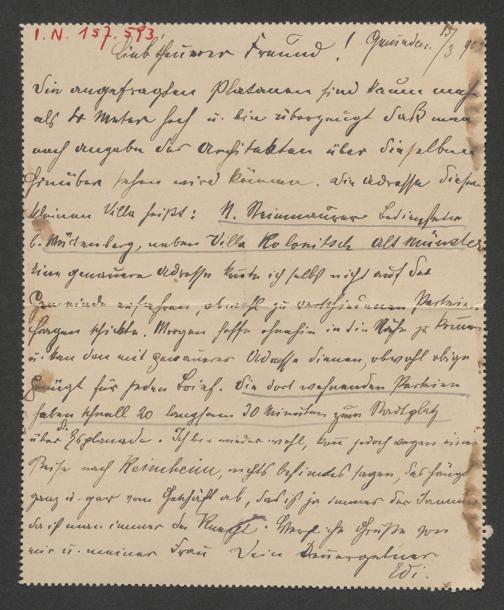 I.N. 157.593
Liebtheurer Freund! Gmunden 15/3 90
Die angefragten Platanen sind kaum mehr
als Meter hoch u. bin überzeugt daß man
nach Angabe des Architekten über dieselben
hinüber sehen wird können. Die Adresse dieser
kleinen Villa heißt: N. Steinmaurer Bediensteter
b. Württemberg, neben Villa Kolonitsch Altmünster
Eine genauere Adresse kann ich selbst nicht auf der
Gemeinde erfahren, obwohl zu verschiedenen Partein
fragen schickte. Morgen hoffe ohnehin in die Nähe zu kommen
u. kann dann mit genauerer Adresse dienen, obwohl obige
genügt für jeden Brief. Die dort wohnenden Parteien
haben schnell 20 langsam 30 Minuten zum Stadtplatz
über die Esplanade. Ich bin wieder wohl, kann jedoch wegen einer
Reise nach nichts bestimmtes sagen, das hängt
ganz u. gar vom Geschäft ab, das ist ja immer der Jammer
da ist man immer der Knecht. Herzliche Grüße von
mir u. meiner Frau Dein
Edi.